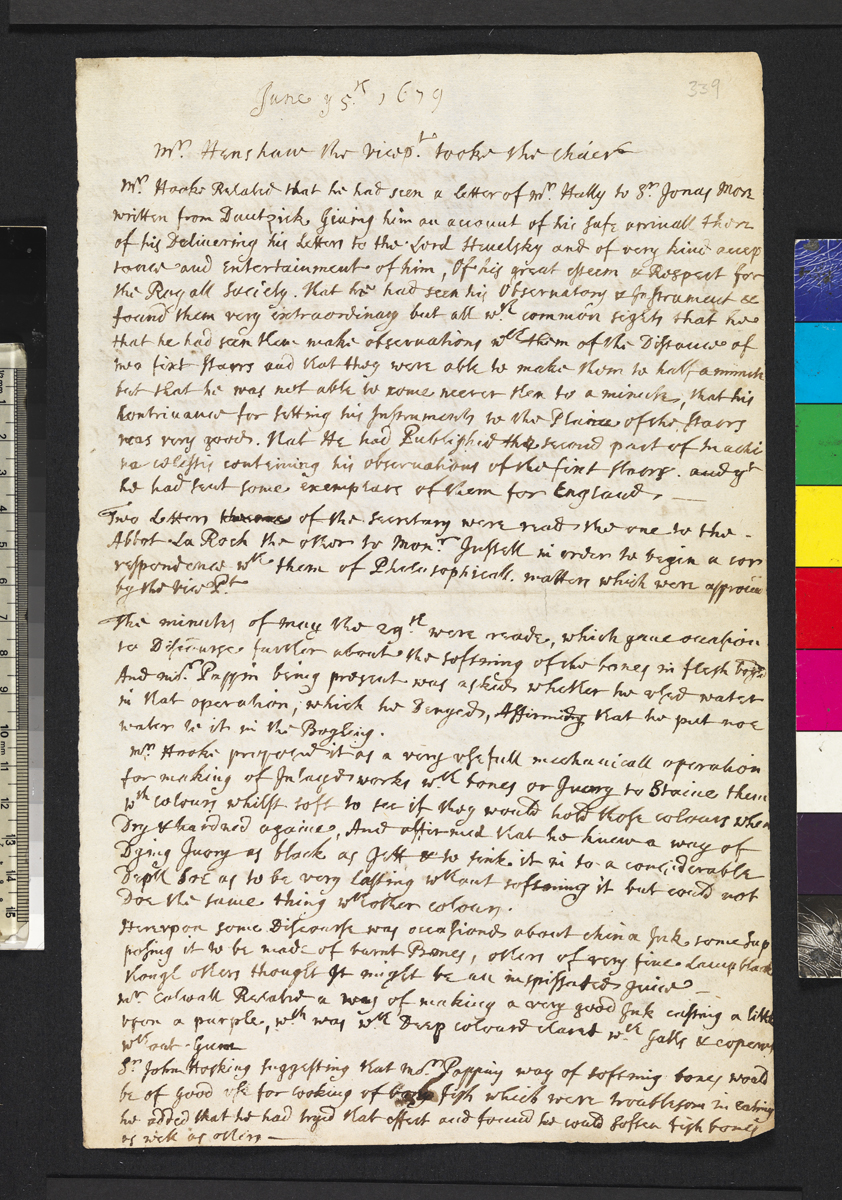 June y 5.th 1679
339
Mr. Henshaw the vicep.t tooke the chaer
Mr. Hooke Related that he had seen a letter of Mr. Hally to Sr. Jonas Mor
written from Dantzick Giving him an account of his safe arrivall there
of his Delivering his letters to the Lord Hevelsky and of very kind accep
tance and Entertainment of him, Of his great esteem & Respect for
the Royall Society. that he had seen his Observatory & Instrument &
found them very extraordinary but all wth common sights that he
that he had seen them make observations wth them of the Distance of
two fixt starrs and that they were able to make them to half a minute
but that he was not able to come neerer then to a minute, that his
Contrivance for setting his Instruments to the Plaine of the starrs
was very good. that He had Published the second part of Machi
na cœlestis containing his observations of the fixt starrs. and yt
he had sent some exemplars of them for England. —
Two Letters of the secretary were read the one to the -
Abbot La Rock the other to Monr. Justell in order to begin a cor
respondence wth them of Philosophicall. matters which were approved
by the vice Pt.
The minutes of may the 29.th were reade, which gave occasion
to Discourse further about the softning of the bones in flesh
And mr. Pappin being present was asked whether he used water
in that operation, which he Denyed, Affirming that he put noe
water to it in the Boyling.
Mr. Hooke proposed it as a very usefull mechanicall operation
for making of Inlayd works wth bones or Ivory to Staine them
wth colours whilst soft to see if they would hold those colours when
Dry & hardned againe, And affirmed that he knew a way of
Dying Ivory as black as Jett & to sink it in to a considerable
Depth soe as to be very lasting wthout softening it but could not
Doe the same thing wth other colours.
Hereupon some Discourse was occasiond about china Ink some sup
posing it to be made of burnt Bones, others of very fine Lampblack
though others thought It might be an inspissated juice —
Mr Colwall Related a way of making a very good Ink casting a little
upon a purple, wch was wth Deep coloured claret wth Galls & coperas
wthout Gum
Sr. John Hosking suggesting that Mor. Pappins way of softning bones would
be of good use for cooking of fish which were troublesom in eating
he added that he had tryd that effect and found he could soften fish bones
as well as others —